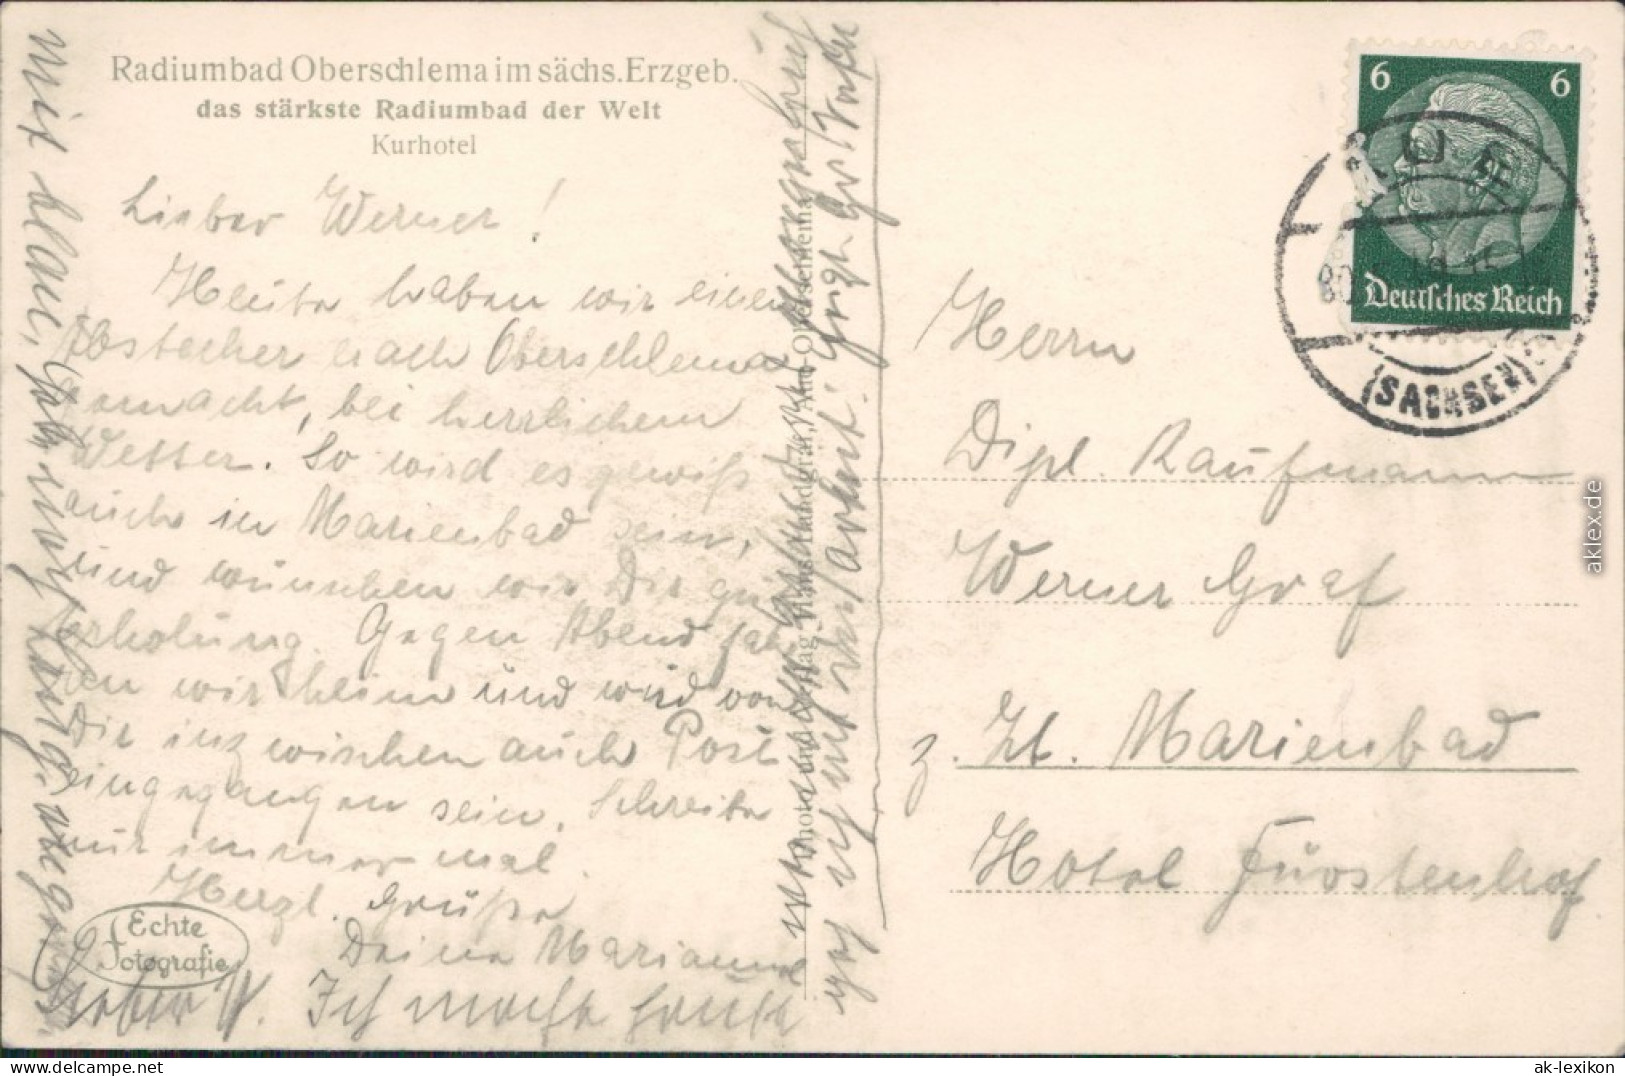 Radiumbad Oberschlema im sächs. Erzgeb.
das stärkste Radiumbad der Welt
Kurhotel
Lieber Werner!
Heute haben wir einen
Abstecher nach Oberschlema
gemacht, bei herrlichem
Wetter. So wird es gewiß
auch in Marienbad sein,
und wünschen wir Dir gute
Erholung. Gegen Abend fah-
ren wir heim und wird von
Dir inzwischen auch Post
eingegangen sein. Schreibe
nur immer mal.
Herzl. Grüße
Deine Marianne
Lieber W. Ich mache heute
mit blau,
Echte
Fotografie
Photo und Verlag Hans Landgraf, Aue-Oberschlema
6 6
Deutsches Reich
AUE
(SACHSEN)
Herrn
Dipl. Kaufmann
Werner Graf
z. Zt. Marienbad
Hotel Fürstenhof
aklex.de
ak-lexikon